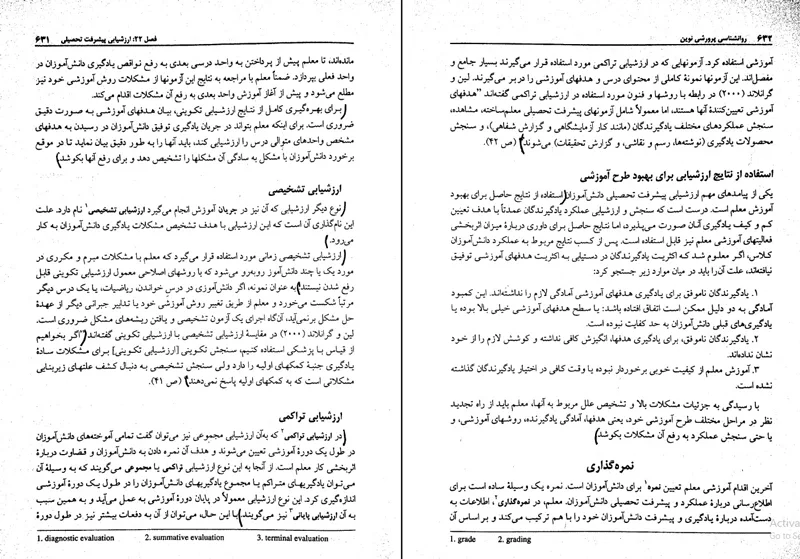 فصل ۲۲: ارزشیابی پیشرفت تحصیلی ۶۳۱
مانده‌اند، تا معلم پیش از پرداختن به واحد درسی بعدی به رفع نواقص یادگیری دانش‌آموزان در
واحد فعلی بپردازد. ضمناً معلم با مراجعه به نتایج این آزمونها از مشکلات روش آموزشی خود نیز
مطلع می‌شود و پیش از آغاز آموزش واحد بعدی به رفع آن مشکلات اقدام می‌کند.
برای بهره‌گیری کامل از نتایج ارزشیابی تکوینی، بیان هدفهای آموزشی به صورت دقیق
ضروری است. برای اینکه معلم بتواند در جریان یادگیری توفیق دانش‌آموزان در رسیدن به هدفهای
مشخص واحدهای متوالی درس را ارزشیابی کند، باید آنها را به طور دقیق بیان نماید تا در موقع
برخورد دانش‌آموزان با مشکل به سادگی آن مشکلها را تشخیص دهد و برای رفع آنها بکوشد.
ارزشیابی تشخیصی
نوع دیگر ارزشیابی که آن نیز در جریان آموزش انجام می‌گیرد ارزشیابی تشخیصی۱ نام دارد. علت
این نام‌گذاری آن است که این ارزشیابی با هدف تشخیص مشکلات یادگیری دانش‌آموزان به کار
می‌رود.
ارزشیابی تشخیصی زمانی مورد استفاده قرار می‌گیرد که معلم با مشکلات مبرم و مکرری در
مورد یک یا چند دانش‌آموز روبه‌رو می‌شود که با روشهای اصلاحی معمول ارزشیابی تکوینی قابل
رفع شدن نیستند. به عنوان نمونه، اگر دانش‌آموزی در درس خواندن، ریاضیات، یا یک درس دیگر
مرتباً شکست می‌خورد و معلم از طریق تغییر روش آموزشی خود یا تدابیر جبرانی دیگر از عهدهٔ
حل مشکل برنمی‌آید، آنگاه اجرای یک آزمون تشخیصی و یافتن ریشه‌های مشکل ضروری است.
لین و گرانلاند (۲۰۰۰) در مقایسهٔ ارزشیابی تشخیصی با ارزشیابی تکوینی گفته‌اند "اگر بخواهیم
از قیاس با پزشکی استفاده کنیم، سنجش تکوینی [ارزشیابی تکوینی] برای مشکلات سادهٔ
یادگیری جنبهٔ کمکهای اولیه را دارد ولی سنجش تشخیصی به دنبال کشف علتهای زیربنایی
مشکلاتی است که به کمکهای اولیه پاسخ نمی‌دهند" (ص ۴۱).
ارزشیابی تراکمی
در ارزشیابی تراکمی۲ که به‌آن ارزشیابی مجموعی نیز می‌توان گفت تمامی آموخته‌های دانش‌آموزان
در طول یک دورهٔ آموزشی تعیین می‌شوند و هدف آن نمره دادن به دانش‌آموزان و قضاوت دربارهٔ
اثربخشی کار معلم است. از آنجا به این نوع ارزشیابی تراکمی یا مجموعی می‌گویند که به وسیلهٔ آن
می‌توان یادگیریهای متراکم یا مجموع یادگیریهای دانش‌آموزان را در طول یک دورهٔ آموزشی
اندازه‌گیری کرد. این نوع ارزشیابی معمولاً در پایان دورهٔ آموزشی به عمل می‌آید و به همین سبب
به آن ارزشیابی پایانی۳ نیز می‌گویند. با این حال، می‌توان از آن به دفعات بیشتر نیز در طول دورهٔ
1. diagnostic evaluation 2. summative evaluation 3. terminal evaluation
۶۳۲ روانشناسی پرورشی نوین
آموزشی استفاده کرد. آزمونهایی که در ارزشیابی تراکمی مورد استفاده قرار می‌گیرند بسیار جامع و
مفصل‌اند. این آزمونها نمونهٔ کاملی از محتوای درس و هدفهای آموزشی را در بر می‌گیرند. لین و
گرانلاند (۲۰۰۰) در رابطه با روشها و فنون مورد استفاده در ارزشیابی تراکمی گفته‌اند: "هدفهای
آموزشی تعیین‌کنندهٔ آنها هستند، اما معمولاً شامل آزمونهای پیشرفت تحصیلی معلم‌ساخته، مشاهده،
سنجش عملکردهای مختلف یادگیرندگان (مانند کار آزمایشگاهی و گزارش شفاهی)، و سنجش
محصولات یادگیری (نوشته‌ها، رسم و نقاشی، و گزارش تحقیقات) می‌شوند" (ص ۴۲).
استفاده از نتایج ارزشیابی برای بهبود طرح آموزشی
یکی از پیامدهای مهم ارزشیابی پیشرفت تحصیلی دانش‌آموزان استفاده از نتایج حاصل برای بهبود
آموزش معلم است. درست است که سنجش و ارزشیابی عملکرد یادگیرندگان عمدتاً با هدف تعیین
کم و کیف یادگیری آنان صورت می‌پذیرد، اما نتایج حاصل برای داوری دربارهٔ میزان اثربخشی
فعالیتهای آموزشی معلم نیز قابل استفاده است. پس از کسب نتایج مربوط به عملکرد دانش‌آموزان
کلاس، اگر معلوم شد که اکثریت یادگیرندگان در دستیابی به اکثریت هدفهای آموزشی توفیق
نیافته‌اند، علت آن را باید در میان موارد زیر جستجو کرد:
۱. یادگیرندگان ناموفق برای یادگیری هدفهای آموزشی آمادگی لازم را نداشته‌اند. این کمبود
آمادگی به دو دلیل ممکن است اتفاق افتاده باشد: یا سطح هدفهای آموزشی خیلی بالا بوده یا
یادگیری‌های قبلی دانش‌آموزان به حد کفایت نبوده است.
۲. یادگیرندگان ناموفق، برای یادگیری هدفها، انگیزش کافی نداشته و کوشش لازم را از خود
نشان نداده‌اند.
۳. آموزش معلم از کیفیت خوبی برخوردار نبوده یا وقت کافی در اختیار یادگیرندگان گذاشته
نشده است.
با رسیدگی به جزئیات مشکلات بالا و تشخیص علل مربوط به آنها، معلم باید از راه تجدید
نظر در مراحل مختلف طرح آموزشی خود، یعنی هدفها، آمادگی یادگیرنده، روشهای آموزشی، و
یا حتی سنجش عملکرد به رفع آن مشکلات بکوشد.
نمره‌گذاری
آخرین اقدام آموزشی معلم تعیین نمره۱ برای دانش‌آموزان است. نمره یک وسیلهٔ ساده است برای
اطلاع‌رسانی دربارهٔ عملکرد و پیشرفت تحصیلی دانش‌آموزان. معلم، در نمره‌گذاری۲، اطلاعات به
دست‌آمده دربارهٔ یادگیری و پیشرفت دانش‌آموزان خود را با هم ترکیب می‌کند و بر اساس آن
1. grade 2. grading